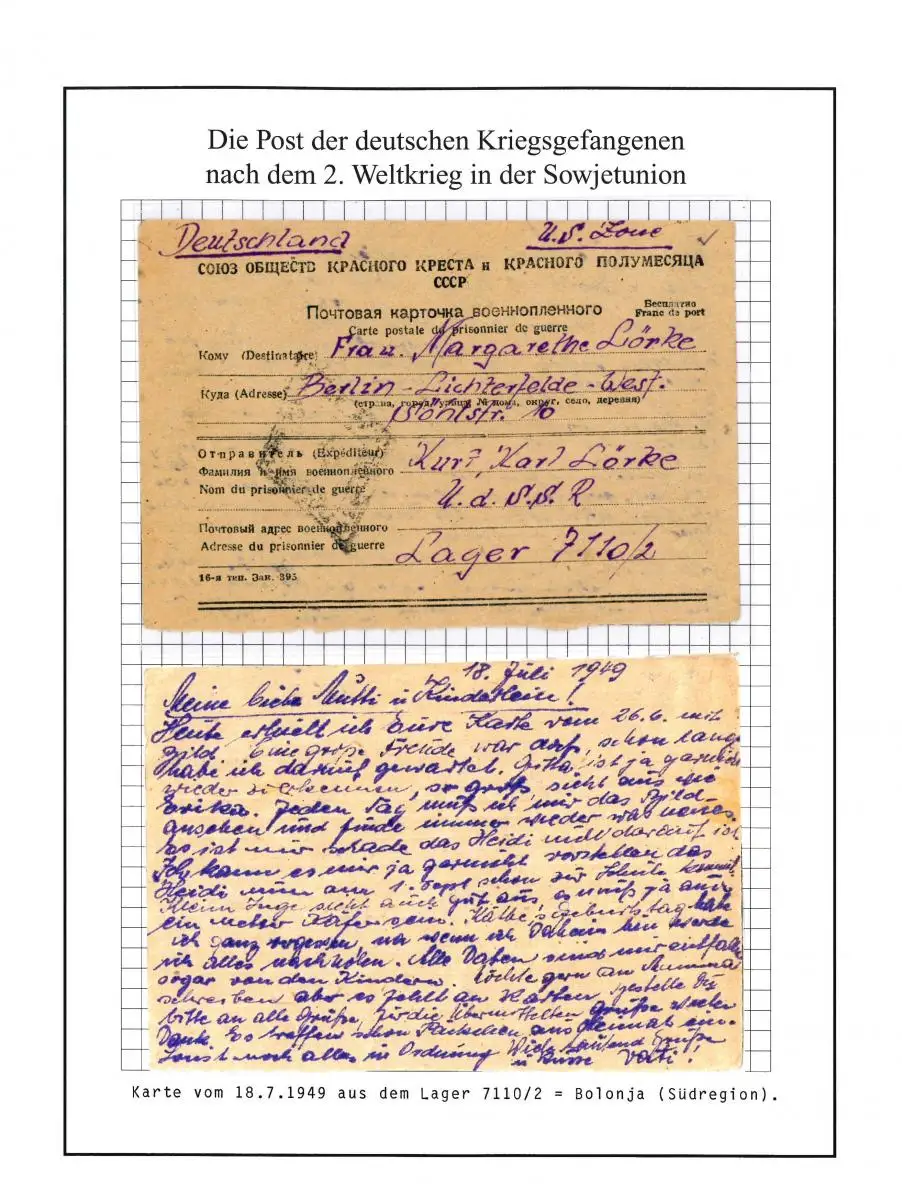 Die Post der deutschen Kriegsgefangenen
nach dem 2. Weltkrieg in der Sowjetunion
Deutschland U.S. Zone
СОЮЗ ОБЩЕСТВ КРАСНОГО КРЕСТА и КРАСНОГО ПОЛУМЕСЯЦА
СССР
Почтовая карточка военнопленного Бесплатно
Carte postale du prisonnier de guerre Franc de port
Кому (Destinataire) Frau. Margarethe Lörke
Куда (Adresse) Berlin-Lichterfelde-West.
(страна, город, улица, № дома, округ, село, деревня)
10
Отправитель (Expéditeur) Kurt, Karl Lörke
Фамилия и имя военнопленного
Nom du prisonnier de guerre U.d.S.S.R
Почтовый адрес военнопленного
Adresse du prisonnier de guerre Lager 7110/2
16-я тип. Зак. 395
18. Juli 1949
Meine liebe Mutti u Kinderlein!
Heute erhielt ich Eure Karte vom 26.6. mit
Bild. Eine große Freude war das, schon lange
habe ich darauf gewartet. ist ja garnicht
wieder zu erkennen, so groß, sieht aus wie
Erika. Jeden Tag muß ich mir das Bild
ansehen und finde immer wieder was neues.
Es ist nur schade das Heidi nicht darauf ist
Ich kann es mir ja garnicht vorstellen das
Heidi nun am 1. Sept schon zur Schule kommt.
Klein Inge sieht auch gut aus, es muß ja auch
ein Käfer sein. Käthe's Geburtstag habe
ich ganz vergessen, wenn ich Daheim bin werde
ich alles nachholen. Alle Daten sind mir entfallen
sogar von den Kindern. Möchte gern an
schreiben aber es fehlt an Karten. bestelle Du
bitte an alle Grüße, für die übermittelten Grüße vielen
Dank. Es treffen schon Päckchen aus Heimat ein.
Sonst noch alles in Ordnung Viele tausend Grüße
u Küsse Vati!
Karte vom 18.7.1949 aus dem Lager 7110/2 = Bolonja (Südregion).